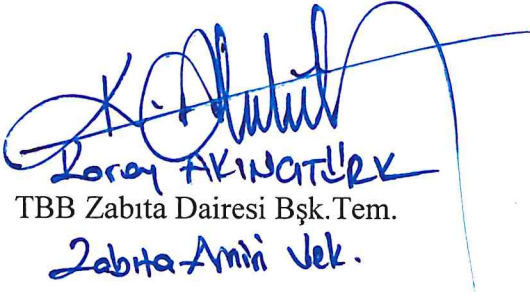 Koray AKINCITÜRK
TBB Zabıta Dairesi Bşk.Tem.
Zabıta Amiri Vek.